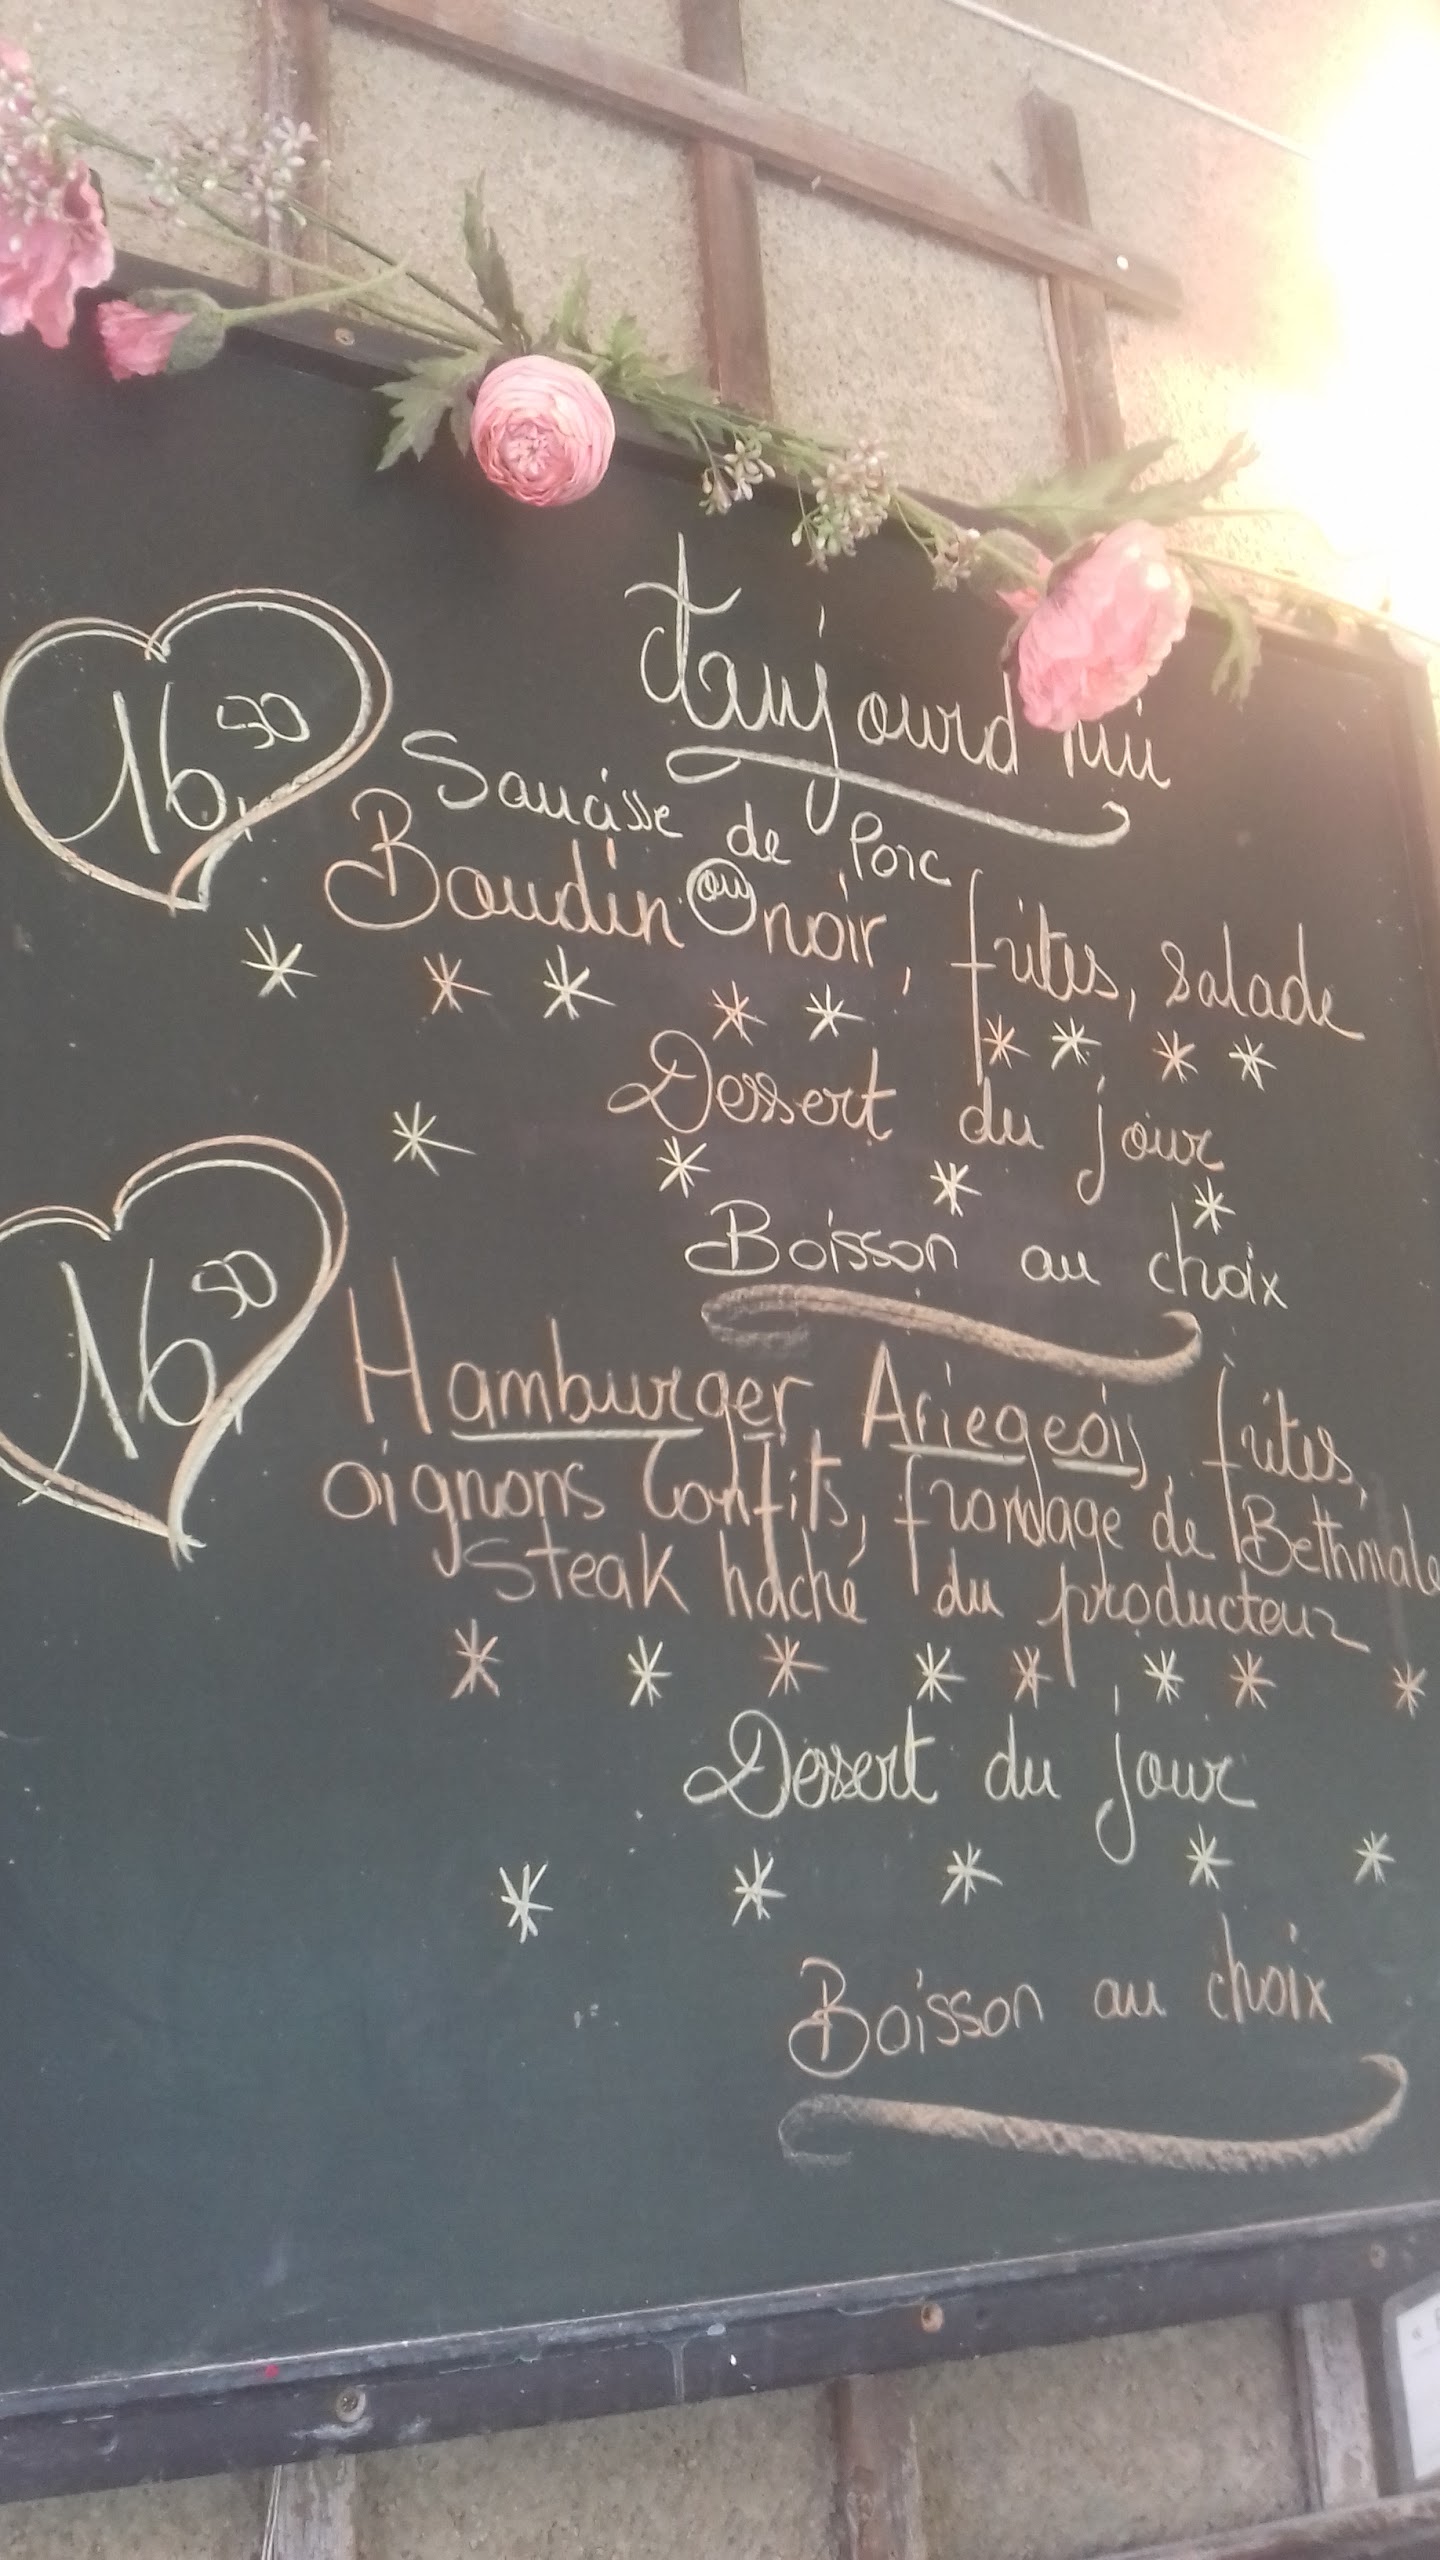 d'aujourd'hui
16,50
Saucisse de Porc
ou
Boudin noir, frites, salade
Dessert du jour
Boisson au choix
16,50
Hamburger Ariegeois, frites,
oignons Confits, fromage de Bethmale
Steak haché du producteur
Dessert du jour
Boisson au choix